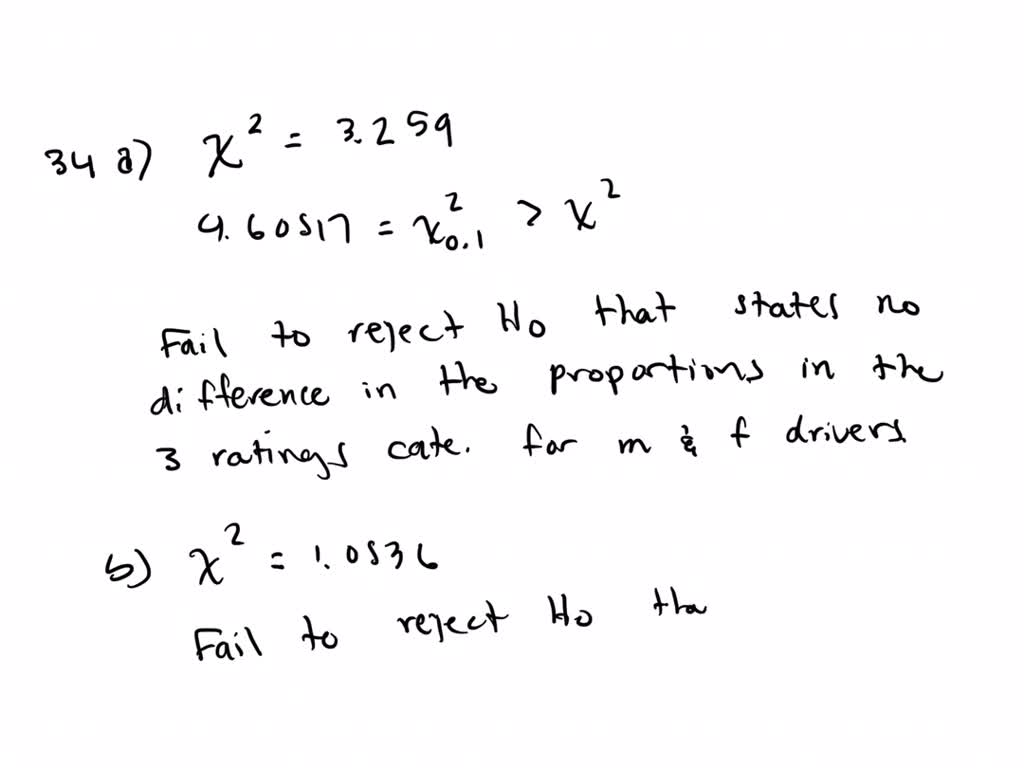 34 a) χ² = 3.259
4.60517 = χ²₀.₁ > χ²
Fail to reject H₀ that states no
difference in the proportions in the
3 ratings cate. for m & f drivers
b) χ² = 1.0536
Fail to reject H₀ tha